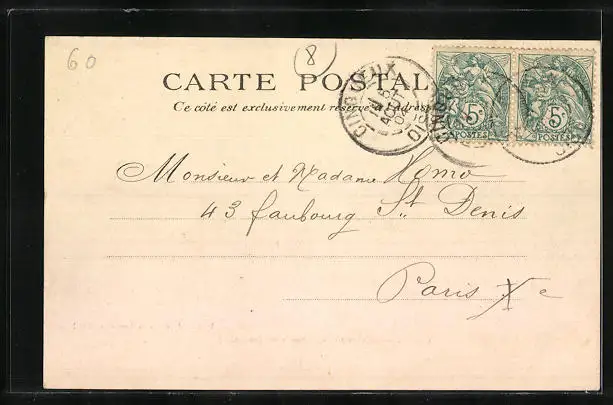 60
8
CARTE POSTAL
Ce côté est exclusivement réservé à l'adresse
CINQUEUX
AOUT
04
OISE
5c 5c
POSTES POSTES
Monsieur et Madame Homo
43 faubourg St Denis
Paris Xe